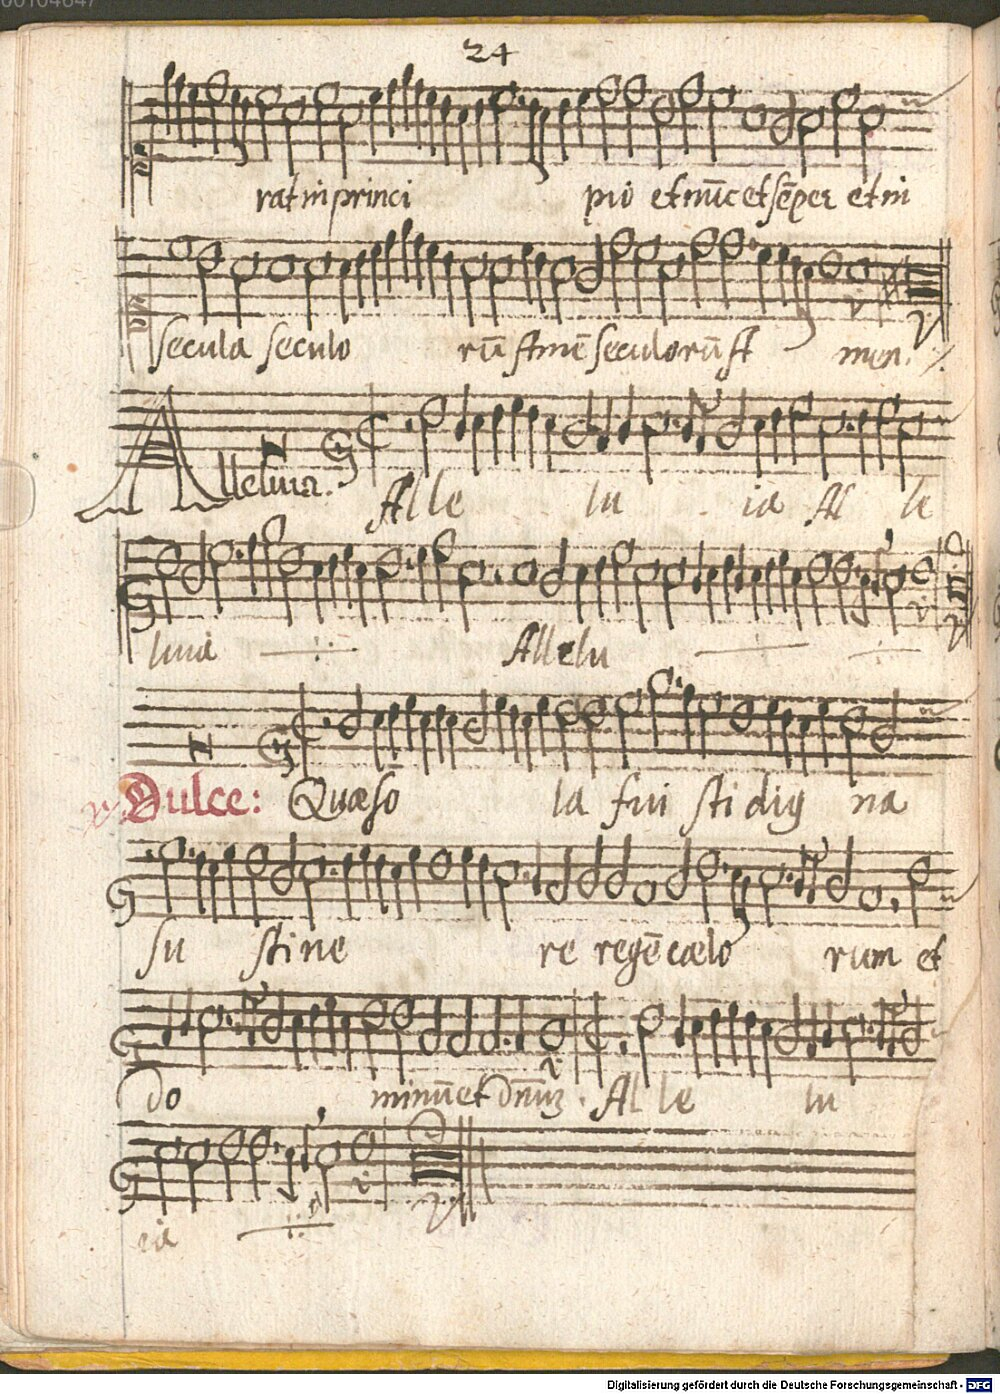 24
rat in princi pio et nūc et sēper et in
secula seculo rū Amē seculorū A men.
Alleluia. Alle lu ia Al le
luia Allelu
Dulce: Quæ so la fui sti dig na
su stine re regē cælo rum et
do minū et Dn̄m. Al le lu
ia
Digitalisierung gefördert durch die Deutsche Forschungsgemeinschaft - DFG